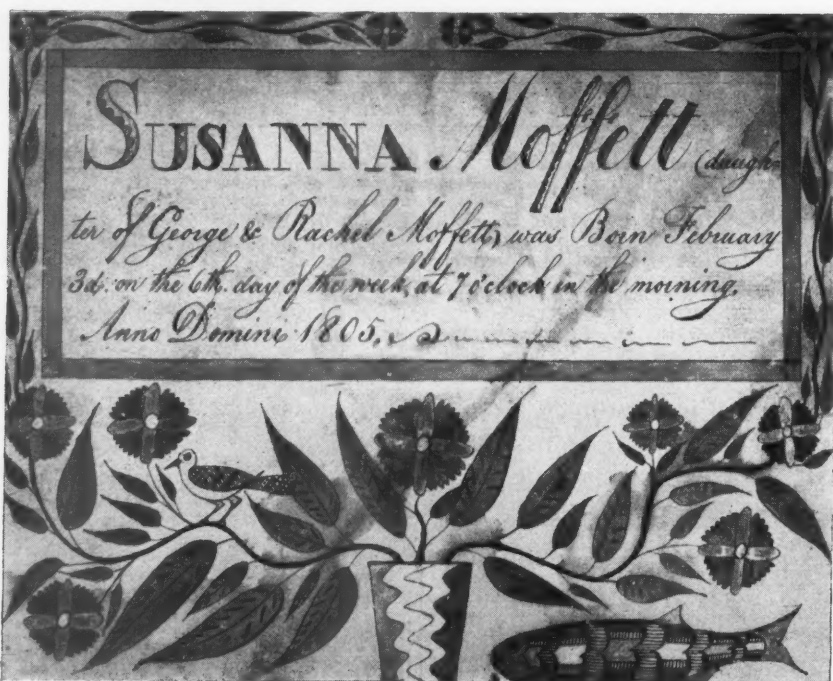 SUSANNA Moffett (daugh-
ter of George & Rachel Moffett) was Born February
3d. on the 6th. day of the week, at 7 o'clock in the morning.
Anno Domini 1805.